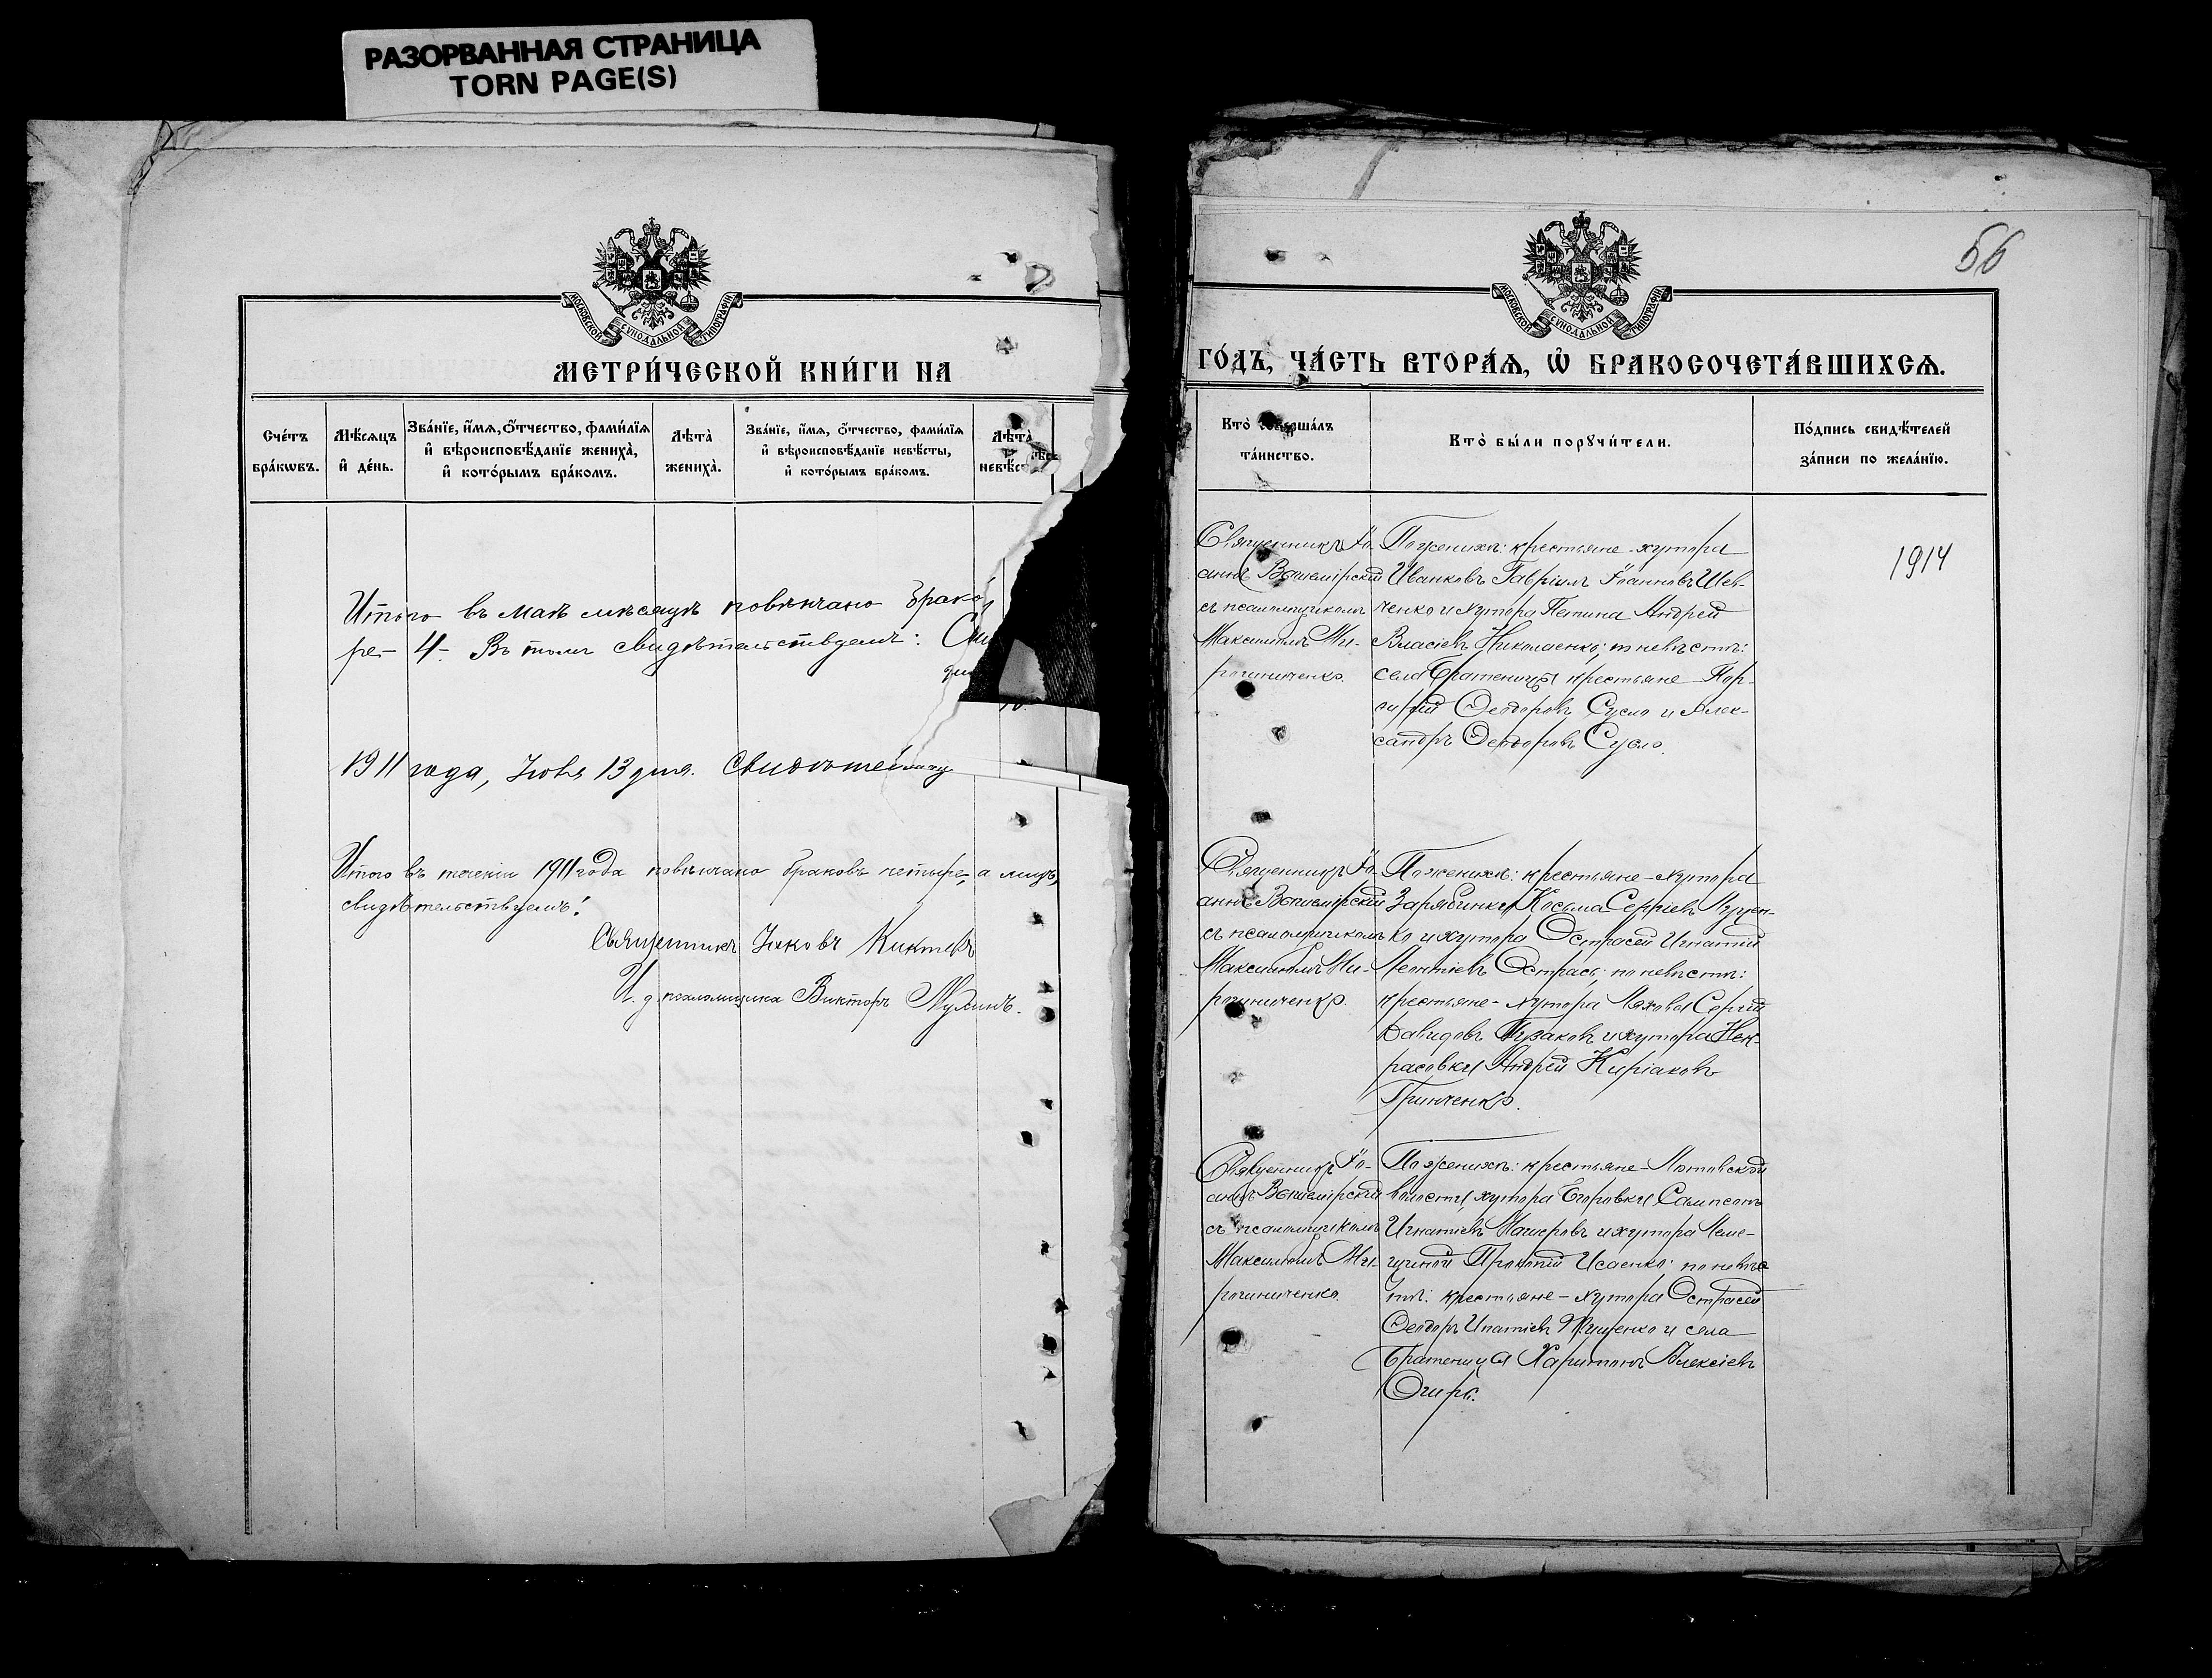 РАЗОРВАННАЯ СТРАНИЦА
TORN PAGE(S)
МОСКОВСКОЙ СѴНОДАЛЬНОЙ ТИПОГРАФІИ
МЕТРИ́ЧЕСКОЙ КНИ́ГИ НА
Сче́тъ бра́кѡвъ.
Мѣ́сяцъ и҆ де́нь.
Зва́нїе, и҆́мя, ѻ҆́тчество, фами́лїя
и҆ вѣроисповѣ́данїе жениха̀,
и҆ кото́рымъ бра́комъ.
Лѣта̀ жениха̀.
Зва́нїе, и҆́мя, ѻ҆́тчество, фами́лїя
и҆ вѣроисповѣ́данїе невѣ́сты,
и҆ кото́рымъ бра́комъ.
Лѣта̀
невѣ́с
Итого въ Маѣ мѣсяцѣ повѣнчано брако
ре- 4-. Въ томъ свидѣтельствуемъ: С
1911 года, Іюня 13 дня.
Итого въ теченіи 1911 года повѣнчано браковъ четыре, а
свидѣтельствуемъ:
Священникъ Іаковъ
И. д. псаломщика Викторъ
56
МОСКОВСКОЙ СѴНОДАЛЬНОЙ ТИПОГРАФІИ
ГО́ДЪ, ЧА́СТЬ ВТОРА́Я, Ѽ БРАКОСОЧЕТА́ВШИХСЯ.
Кто̀ соверша́лъ
та́инство.
Кто̀ бы́ли порꙋчи́тели.
По́дпись свидѣ́телей
за́писи по жела́нїю.
1914
Священникъ Іо-
аннъ
съ псаломщикомъ
Максимомъ Ми-
рошниченко.
По женихѣ: крестьяне - хутора
Иванковъ Гавріилъ Іоанновъ Шев-
ченко и хутора Петина Андрей
Власіевъ Николаенко; по невѣстѣ:
села Братеницы крестьяне Пор-
фирій Ѳеодоровъ Сусло и Алек-
сандръ Ѳеодоровъ Сусло.
Священникъ Іо-
аннъ
съ псаломщикомъ
Максимомъ Ми-
рошниченко.
По женихѣ: крестьяне - хутора
Зарябинки Косьма Сергіевъ Куцен-
ко и хутора Острасей Игнатій
Леонтіевъ Острась; по невѣстѣ:
крестьяне - хутора Ляхова Сергій
Давидовъ и хутора Нек-
расовки Андрей Киріаковъ
Гринченко.
Священникъ Іо-
аннъ
съ псаломщикомъ
Максимомъ Ми-
рошниченко.
По женихѣ: крестьяне -
волости, хутора Егоровки Сампсонъ
Игнатіевъ и хутора Леме-
щиной Прокопій Исаенко; по невѣс-
тѣ: крестьяне - хутора Острасей
Ѳеодоръ Ипатіевъ и села
Братеницы Харитонъ Алексіевъ
Огирь.